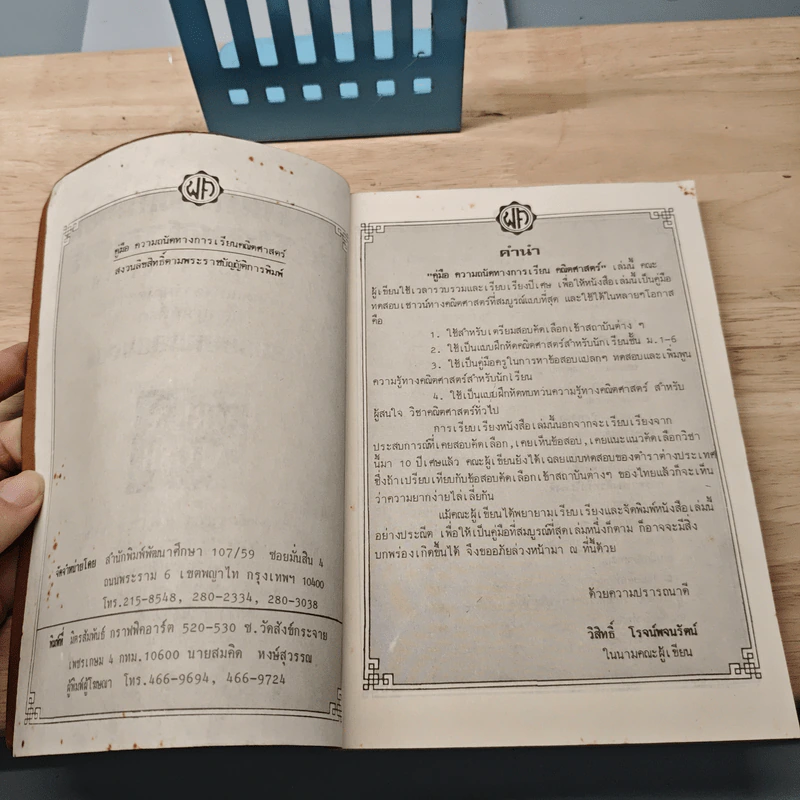 ฝค
คู่มือ ความถนัดทางการเรียนคณิตศาสตร์
สงวนลิขสิทธิ์ตามพระราชบัญญัติการพิมพ์
จัดจำหน่ายโดย สำนักพิมพ์พัฒนาศึกษา 107/59 ซอยมั่นสิน 4
ถนนพระราม 6 เขตพญาไท กรุงเทพฯ 10400
โทร.215-8548, 280-2334, 280-3038
พิมพ์ที่ มิตรสัมพันธ์ กราฟฟิคอาร์ต 520-530 ซ.วัดสังข์กระจาย
เพชรเกษม 4 กทม.10600 นายสมคิด หงษ์สุวรรณ
ผู้พิมพ์ผู้โฆษณา โทร.466-9694, 466-9724
ฝค
คำนำ
"คู่มือ ความถนัดทางการเรียน คณิตศาสตร์" เล่มนี้ คณะ
ผู้เขียนใช้เวลารวบรวมและเรียบเรียงปีเศษ เพื่อให้หนังสือเล่มนี้เป็นคู่มือ
ทดสอบเชาวน์ทางคณิตศาสตร์ที่สมบูรณ์แบบที่สุด และใช้ได้ในหลายๆโอกาส
คือ
1. ใช้สำหรับเตรียมสอบคัดเลือกเข้าสถาบันต่าง ๆ
2. ใช้เป็นแบบฝึกหัดคณิตศาสตร์สำหรับนักเรียนชั้น ม.1-6
3. ใช้เป็นคู่มือครูในการหาข้อสอบแปลกๆ ทดสอบและเพิ่มพูน
ความรู้ทางคณิตศาสตร์สำหรับนักเรียน
4. ใช้เป็นแบบฝึกหัดทบทวนความรู้ทางคณิตศาสตร์ สำหรับ
ผู้สนใจ วิชาคณิตศาสตร์ทั่วไป
การเรียบเรียงหนังสือเล่มนี้นอกจากจะเรียบเรียงจาก
ประสบการณ์ที่เคยสอบคัดเลือก,เคยเห็นข้อสอบ,เคยแนะแนวคัดเลือกวิชา
นี้มา 10 ปีเศษแล้ว คณะผู้เขียนยังได้เฉลยแบบทดสอบของตำราต่างประเทศ
ซึ่งถ้าเปรียบเทียบกับข้อสอบคัดเลือกเข้าสถาบันต่างๆ ของไทยแล้วก็จะเห็น
ว่าความยากง่ายไล่เลี่ยกัน
แม้คณะผู้เขียนได้พยายามเรียบเรียงและจัดพิมพ์หนังสือเล่มนี้
อย่างประณีต เพื่อให้เป็นคู่มือที่สมบูรณ์ที่สุดเล่มหนึ่งก็ตาม ก็อาจจะมีสิ่ง
บกพร่องเกิดขึ้นได้ จึงขออภัยล่วงหน้ามา ณ ที่นี้ด้วย
ด้วยความปรารถนาดี
วิสิทธิ์ โรจน์พจนรัตน์
ในนามคณะผู้เขียน